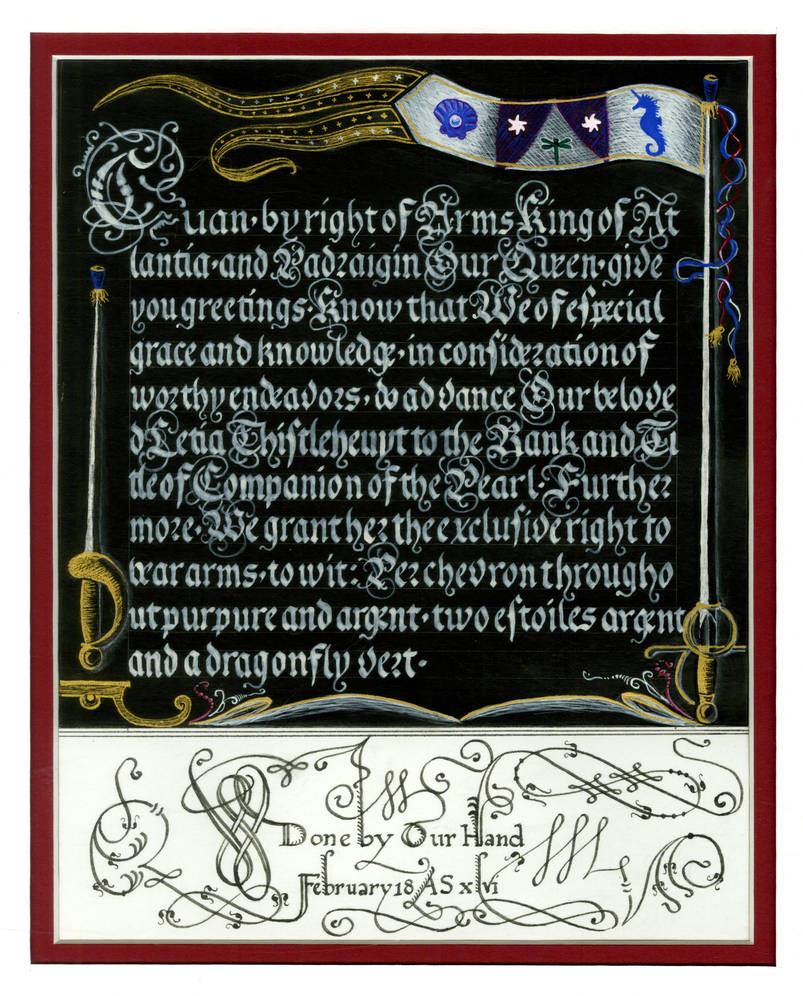 Cuan·by right of Arms King of At
lantia·and Padraigin Our Queen·give
you greetings·Know that We of eſpecial
grace and knowledge·in conſideration of
worthy endeavors·do advance Our belove
d Letia Thiſtleheuyt to the Rank and Ti
tle of Companion of the Pearl·Further
more·We grant her the excluſive right to
bear arms·to wit: Per chevron througho
ut purpure and argent·two eſtoiles argent
and a dragonfly vert·
Done by Our Hand
February 18 AS xlvi